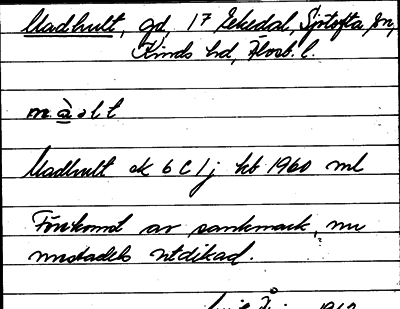 Madhult, gd, 17 Ekedal, Sjötofta sn,
Kinds hd, Älvsb. l.
m à l t
Madhult ek 6 C 1 j kb 1960 ml
Förekomst av sankmark, nu
utdikad.